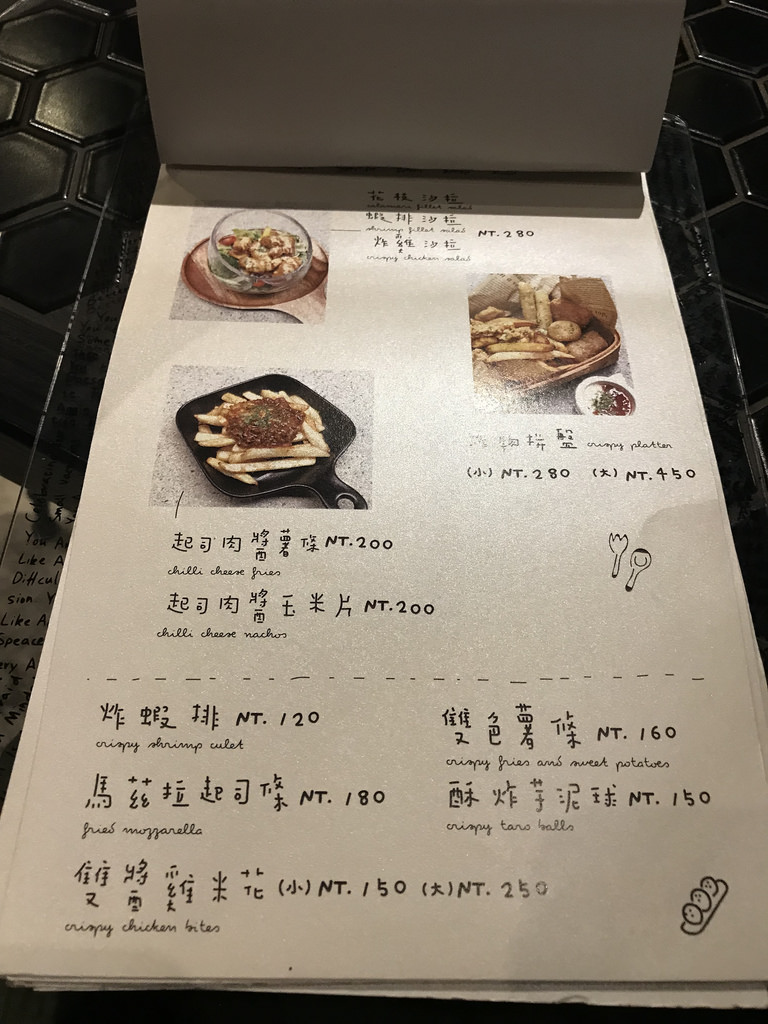 花枝沙拉
calamari fillet salad
蝦排沙拉
shrimp fillet salad
炸雞沙拉 NT.280
crispy chicken salad
炸物拼盤 crispy platter
(小) NT.280 (大) NT.450
起司肉醬薯條 NT.200
chilli cheese fries
起司肉醬玉米片 NT.200
chilli cheese nachos
炸蝦排 NT. 120
crispy shrimp culet
雙色薯條 NT. 160
crispy fries and sweet potatoes
馬茲拉起司條 NT. 180
fried mozzarella
酥炸芋泥球 NT. 150
crispy taro balls
雙醬雞米花 (小) NT. 150 (大) NT. 250
crispy chicken bites
You A
Like A
Difficul
sion. Y
Like A
Speace